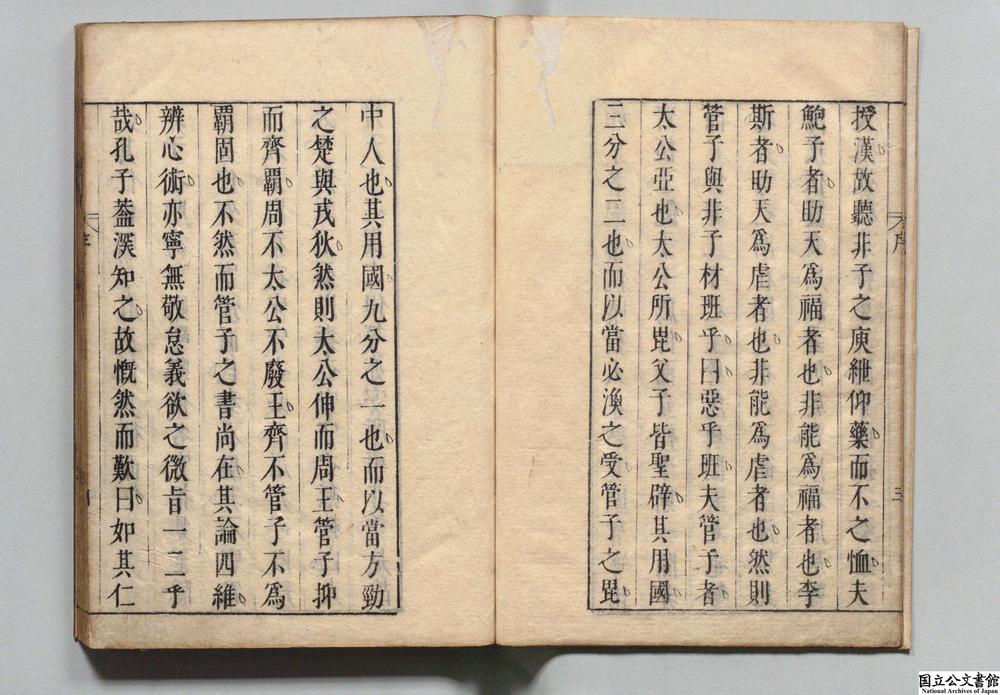 授漢故聽非子之庾紲仰藥而不之恤夫
鮑子者助天爲福者也非能爲福者也李
斯者助天爲虐者也非能爲虐者也然則
管子與非子材班乎曰惡乎班夫管子者
太公亞也太公所毘父子皆聖辟其用國
三分之二也而以當必渙之受管子之毘
中人也其用國九分之一也而以當方勁
之楚與戎狄然則太公伸而周王管子抑
而齊覇周不太公不廢王齊不管子不爲
覇固也不然而管子之書尚在其論四維
辨心術亦寧無敬怠義欲之微旨一二乎
哉孔子葢深知之故慨然而歎曰如其仁
序
三
国立公文書館
National Archives of Japan